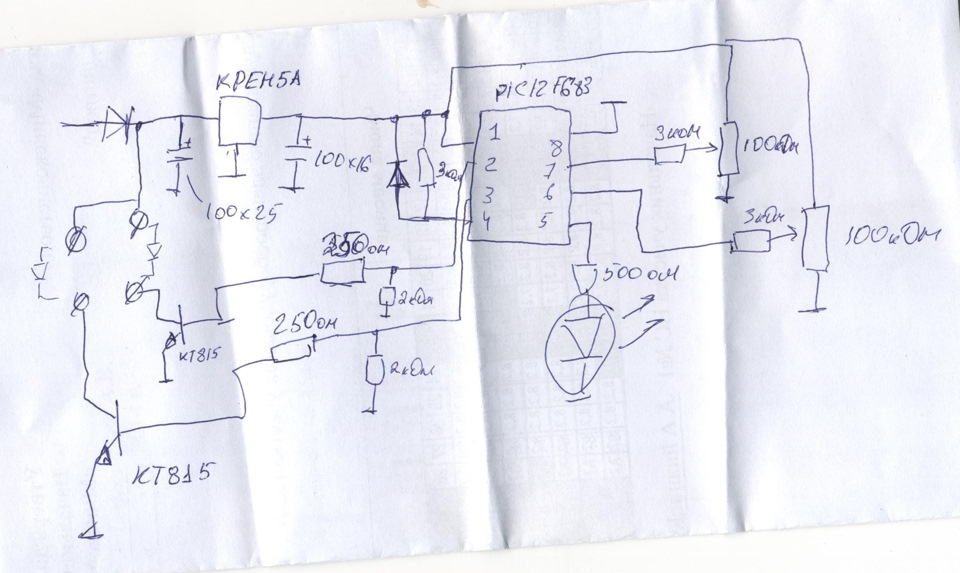 КРЕН5А
PIC12F683
100x25
100x16
3ком
1
2
3
4
8
7
6
5
3ком
100кОм
3кОм
100кОм
250ом
2кОм
250ом
2кОм
500ом
КТ815
КТ815
+
+